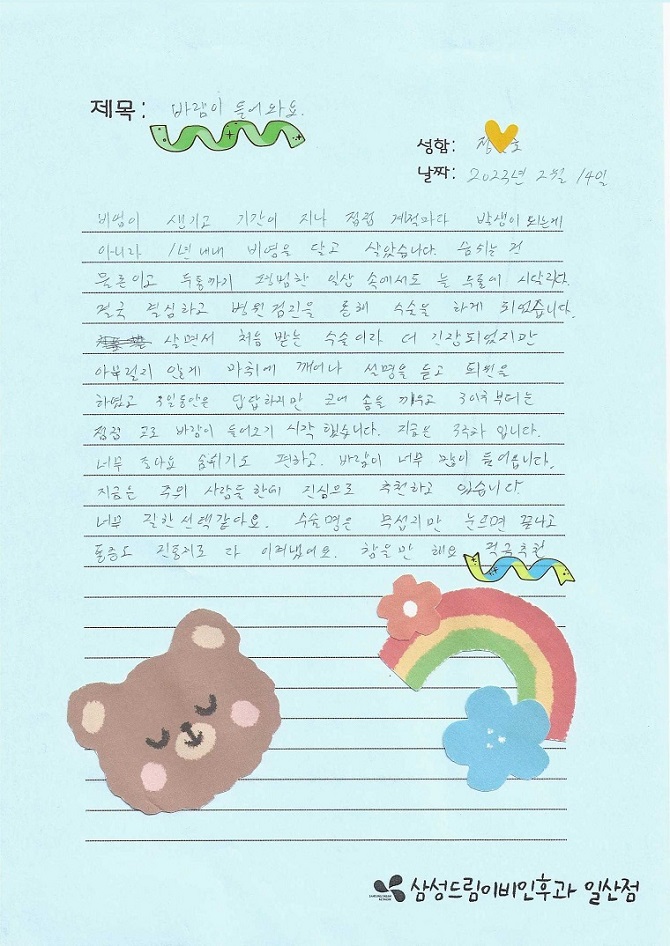 제목: 바람이 들어와요.
성함: 정 호
날짜: 2023년 2월 14일
비염이 생기고 기간이 지나 점점 계절마다 발생이 되는게
아니라 1년 내내 비염을 달고 살았습니다. 숨쉬는 건
물론이고 두통까지 평범한 일상 속에서도 늘 두통에 시달리다.
결국 결심하고 병원 검진을 통해 수술을 하게 되었습니다.
살면서 처음 받는 수술이라 더 긴장되었지만
아무렇지 않게 마취에 깨어나 설명을 듣고 퇴원을
하였고 3일동안은 답답하지만 코에 솜을 끼우고 3일차부터는
점점 코로 바람이 들어오기 시작 했습니다. 지금은 3주차 입니다.
너무 좋아요 숨쉬기도 편하고. 바람이 너무 많이 들어옵니다.
지금은 주위 사람들한테 진심으로 추천하고 있습니다
너무 잘한 선택같아요. 수술명은 무섭지만 눈뜨면 끝나고
통증도 진통제로 다 이겨냈어요. 참을만 해요 적극추천
삼성드림이비인후과 일산점